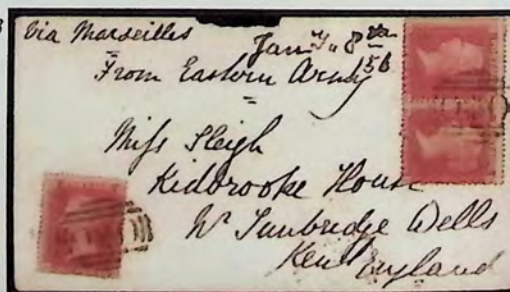 Via Marseilles
Jany 8th
From Eastern Army /56
Miss Sleigh
Kidbrooke House
Nr Tunbridge Wells
Kent England